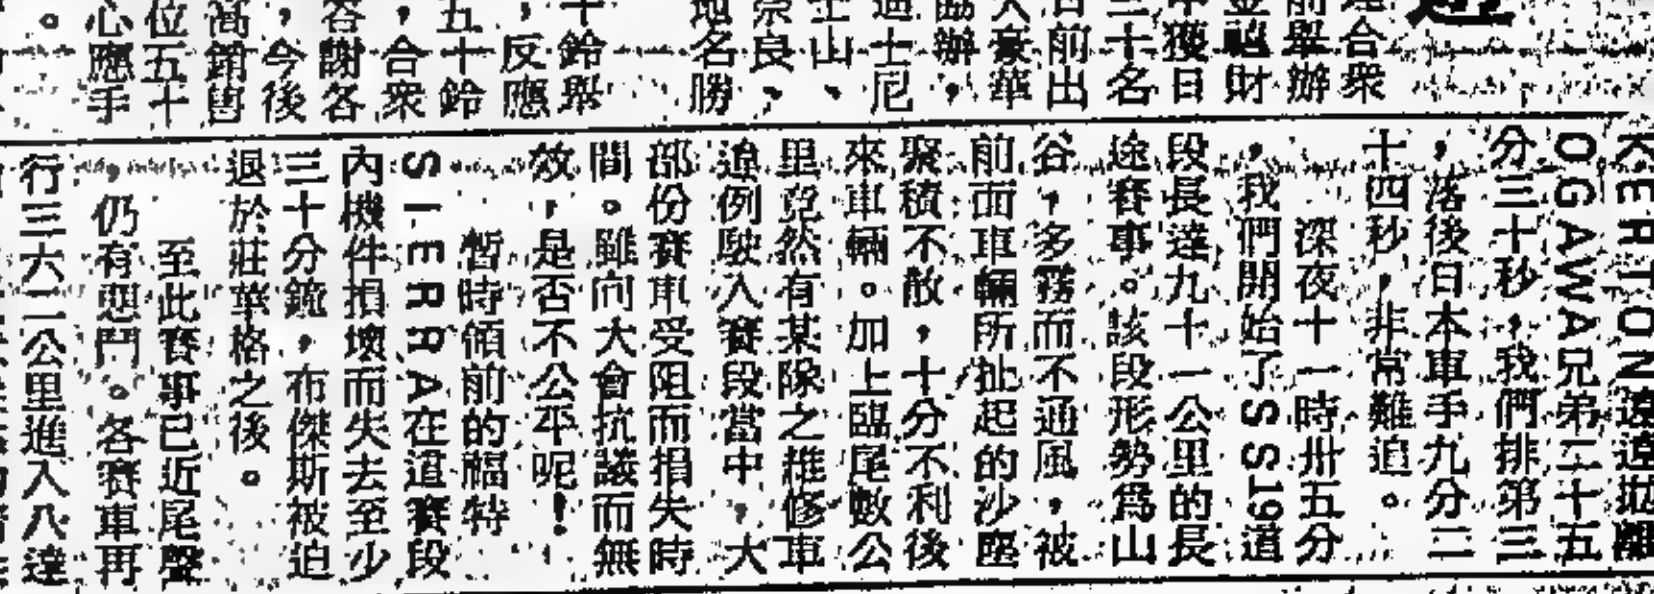 遠合衆
前舉辦
金禧財
中獲日
三十名
日前出
大豪華
協辦，
迪士尼
士山、
奈良，
地名勝
十鈴舉
，反應
五十鈴
，合衆
答謝各
，今後
高銷售
位五十
心應手
。
KERTON遠遠拋離
OGAWA兄弟二十五
分三十秒，我們排第三
，落後日本車手九分二
十四秒，非常難追。
深夜十一時卅五分
，我們開始了SS19道
段長達九十一公里的長
途賽事。該段形勢爲山
谷，多霧而不通風，被
前面車輛所扯起的沙塵
聚積不散，十分不利後
來車輛。加上臨尾數公
里竟然有某隊之維修車
違例駛入賽段當中，大
部份賽車受阻而損失時
間。雖向大會抗議而無
效，是否不公平呢！
暫時領前的福特
SIERRA在這賽段
內機件損壞而失去至少
三十分鐘，布傑斯被迫
退於莊華格之後。
至此賽事已近尾聲
，仍有惡鬥。各賽車再
行三六二公里進入八達